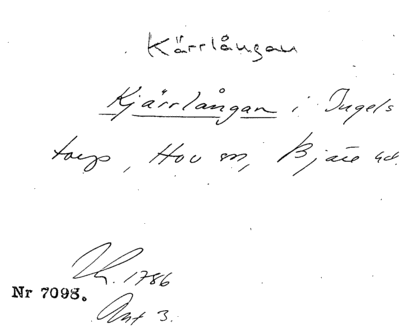 Kärrlångan
Kjärrlångan i Ingels
torp, Hov sn, Bjäre hd.
1786
Nr 7098.
Akt 3.